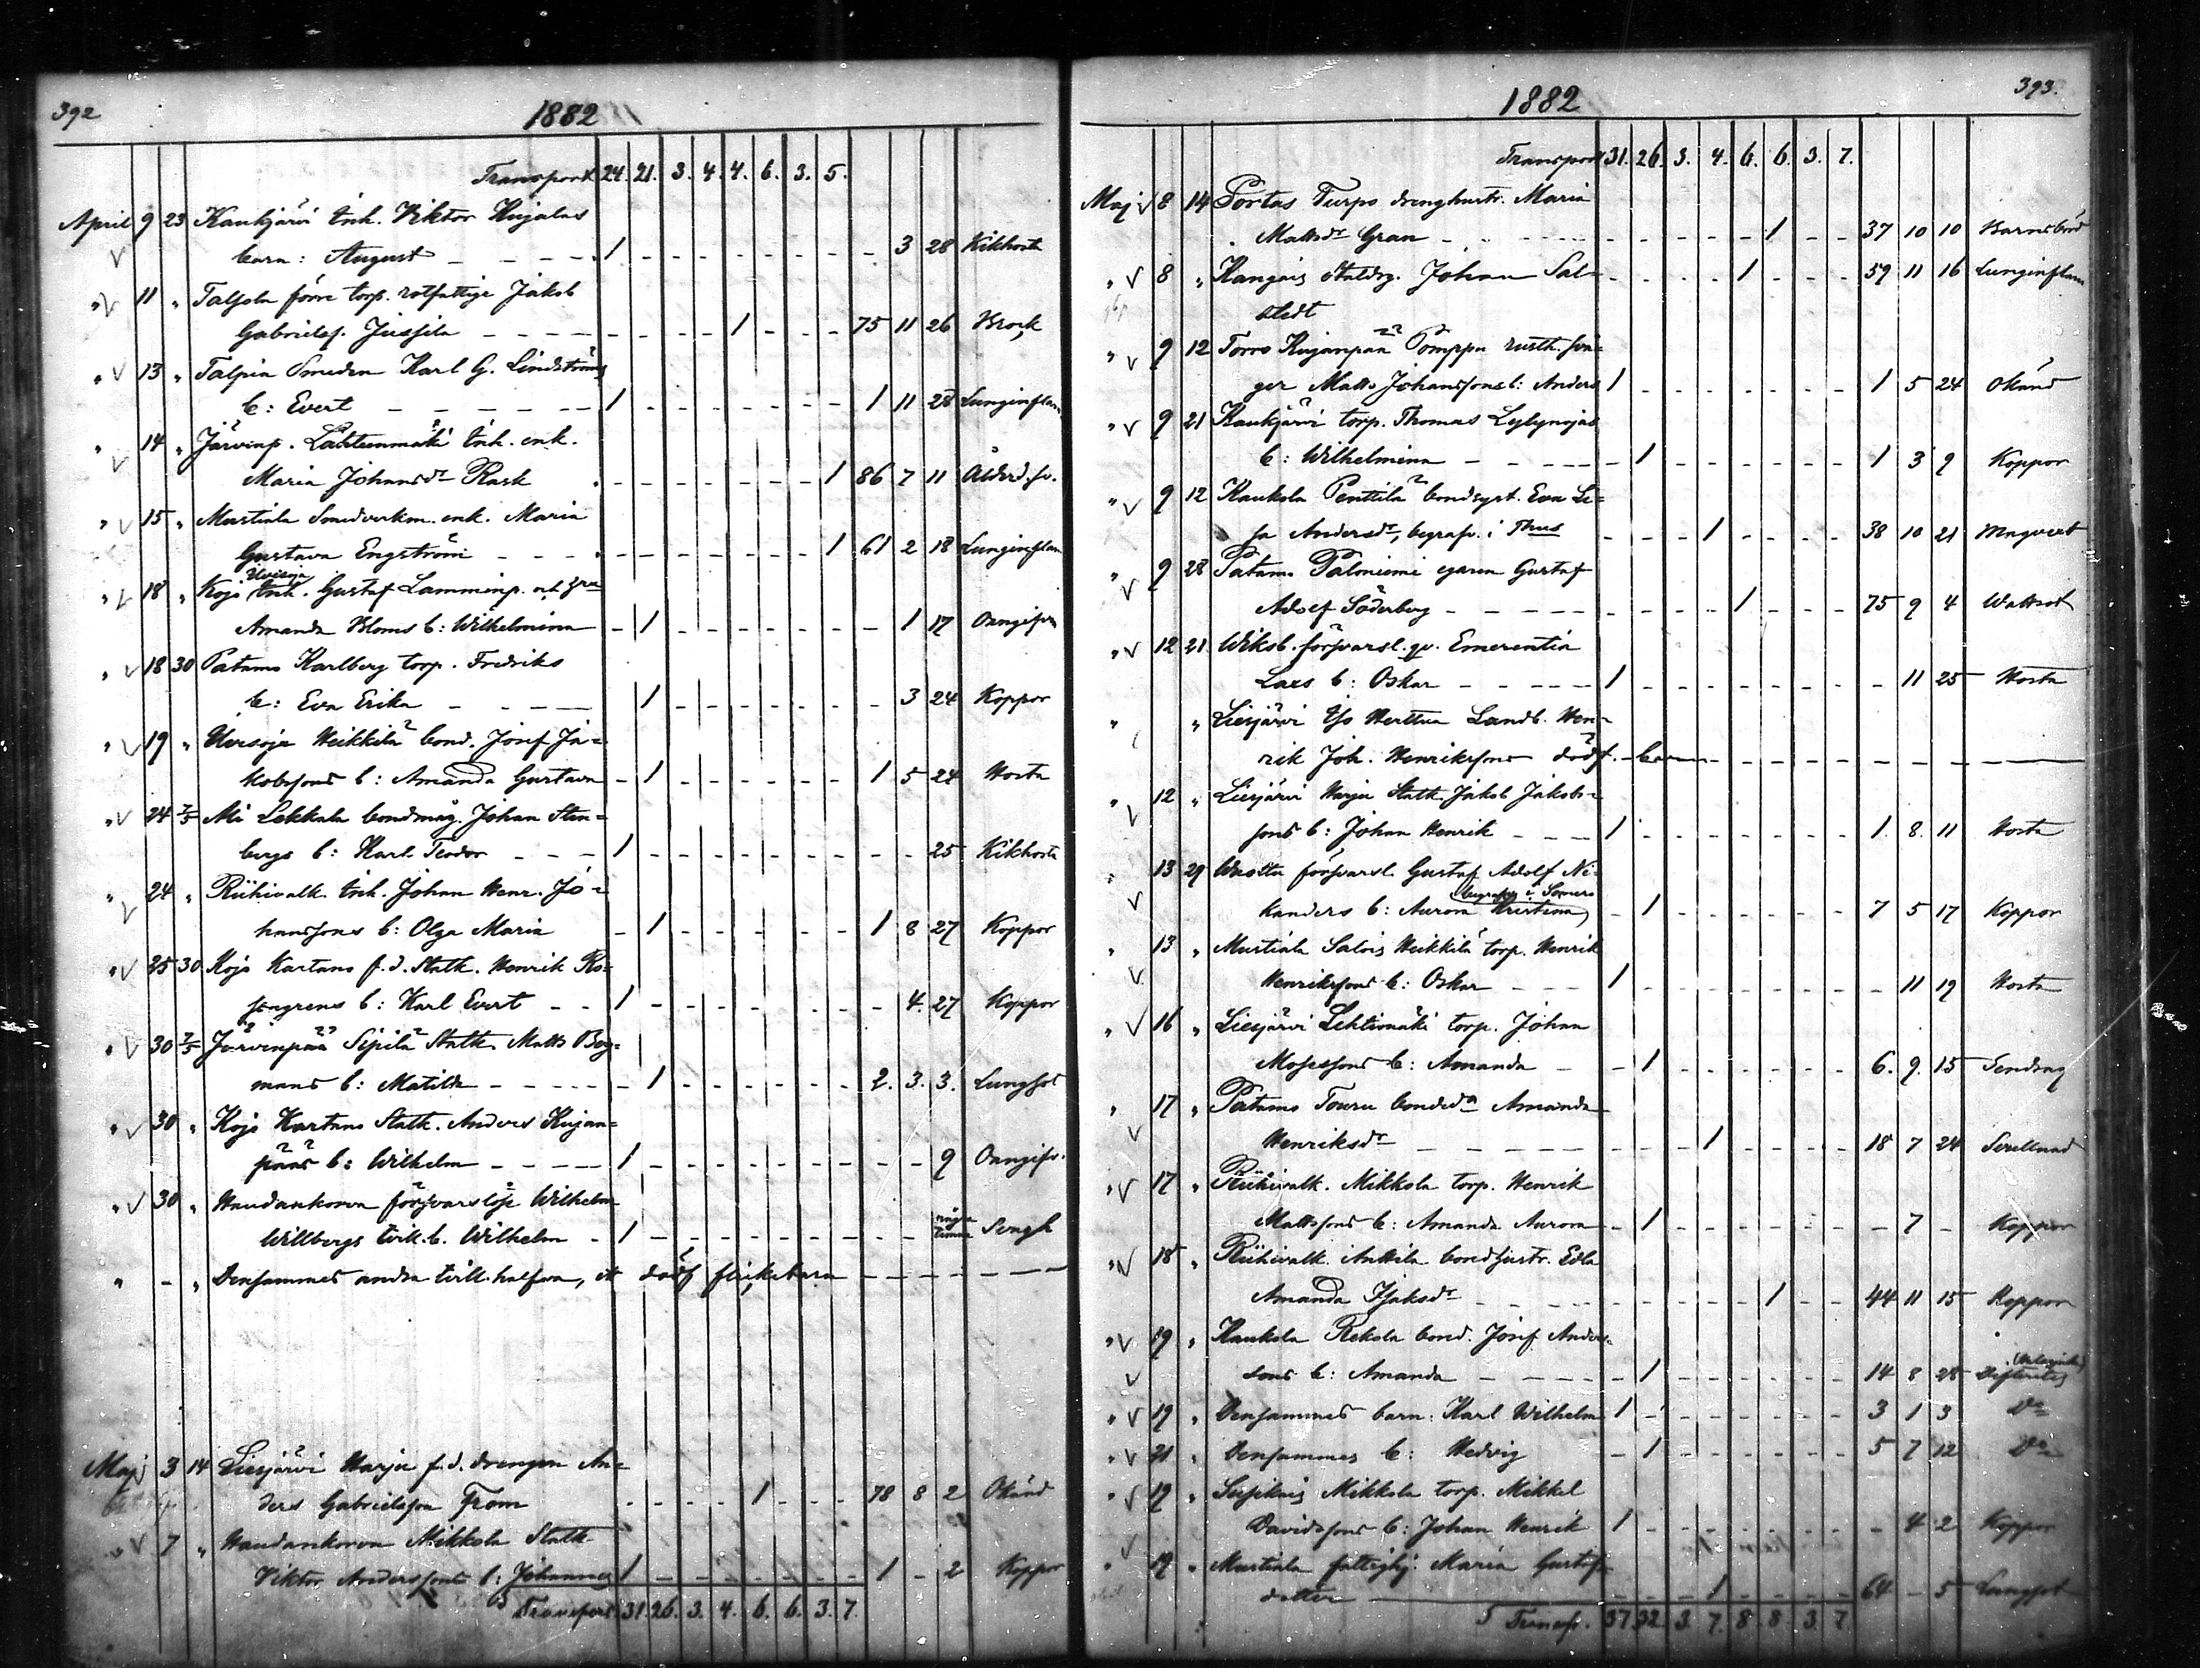 392
1882
Transport 24. 21. 3. 4. 4. 6. 3. 5.
April 9 23 Kaukjärvi inh. Viktor Kujalas
barn: August 1 3 28 Kikhosta
" 11 " Taljala förre torp. rotfattige Jakob
Gabrielsf. Jussila 1 75 11 26 Brock
" 13 " Talpia Smeden Karl G. Lindströms
b: Evert 1 1 11 28 Lunginflam
" 14 " Järvenp. Lahteenmäki inh. enk.
Maria Johansdr Rask 1 86 7 11 Ålderd.sv.
" 15 " Mustiala Smedverkm. enk. Maria
Gustava Engström 1 61 2 18 Lunginflam
" 18 " Kojo inh. Gustaf Lamminp. och
Amanda Bloms b: Wilhelmina 1 1 17 Oangifven
" 18 30 Patamo Karlberg torp. Fredriks
b: Eva Erika 1 3 24 Koppor
" 19 " Uvesoja Heikkilä bond. Josef Ja=
kobssons b: Amanda Gustava 1 1 5 24 Hosta
" 24 7/5 Lekkala bondmåg. Johan Sten=
bergs b: Karl Teodor 1 25 Kikhosta
" 24 " Riihivalk. inh. Johan Henr. Jo=
hanssons b: Olga Maria 1 1 8 27 Koppor
" 25 30 Kojo Kartano f.d. Statk. Henrik Ro=
sengrens b: Karl Evert 1 4. 27 Koppor
" 30 7/5 Järvenpää Sipilä Statk. Matts Bog=
mans b: Matilda 1 2. 3. 3. Lungsot
" 30 " Kojo Kartano Statk. Anders Kujan=
pääs b: Wilhelm 1 9 Oangifv.
" 30 " Haudankorva försvarslöse Wilhelm
Willbergs tvill.b. Wilhelm 1 några timmar
" - " Densammes andra tvill.halfva, ett dödf flickebarn
Maj 3 14 Liesjärvi Harju f.d. drengen An=
ders Gabrielsson From 1 78 8 2 Okänd
" 7 " Haudankorva Mikkola Statk
Viktor Anderssons b: Johannes 1 1 - 2 Koppor
Transport 31 26. 3. 4. 6. 6. 3. 7.
393.
1882
Transport 31. 26. 3. 4. 6. 6. 3. 7.
Maj 8 14 Portas Turpo drenghustr. Maria
Mattsdr Gran 1 37 10 10 Barnsbörd
" 8 " Kangais Johan Sal=
stedt 1 59 11 16 Lunginflam
" 9 12 Torro Kujanpää Pomppu rusth. svå=
ger Matts Johanssons b: Anders 1 1 5 24 Okänd
" 9 21 Kaukjärvi torp. Thomas Lylynojas
b: Wilhelmina 1 1 3 9 Koppor
" 9 12 Kaukola Penttilä bondgst. Eva Li=
sa Andersdr, begrafv. i 1 38 10 21
" 9 28 Patamo Paloniemi egaren Gustaf
Adolf Söderberg 1 75 9 4 Wattsot
" 12 21 Wiksb. försvarsl. qv. Emerentia
Lars b: Oskar 1 11 25 Hosta
" " Liesjärvi Herttua Landb. Hen=
rik Joh. Henrikssons dödf. barn
" 12 " Liesjärvi Harju Statk. Jakob Jakobs=
sons b: Johan Henrik 1 1. 8. 11 Hosta
" 13 29 försvarsl. Gustaf Adolf Ni=
begrafven i Somero
kanders b: Aurora Kristina 1 7 5 17 Koppor
" 13 " Mustiala Salois Heikkilä torp. Henrik
Henrikssons b: Oskar 1 11 19 Hosta
" 16 " Liesjärvi Lehtimäki torp. Johan
Mosessons b: Amanda 1 6. 9. 15 Sendrag
" 17 " Patamo Touru bonded. Amanda
Henriksdr 1 18 7 24
" 17 " Riihivalk. Mikkola torp. Henrik
Mattssons b: Amanda Aurora 1 7 - Koppor
" 18 " Riihivalk. Anttila bondhustr. Edla
Amanda Isaksdr 1 44 11 15 Koppor
" 19 " Kaukola Rekola bond. Josef Anders=
sons b: Amanda 1 14 8 28 Difteritis
" 19 " Densammes barn: Karl Wilhelm 1 3 1 3 Do
" 21 " Densammes b: Hedvig 1 5 7 12 Do
" 19 " Susikais Mikkola torp. Mikkel
Davidssons b: Johan Henrik 1 4 2 Koppor
" 19 " Mustiala fattighj. Maria Gustafs=
dotter 1 64 - 5 Lungsot
Transp. 37 32 3 7. 8 8 3 7.